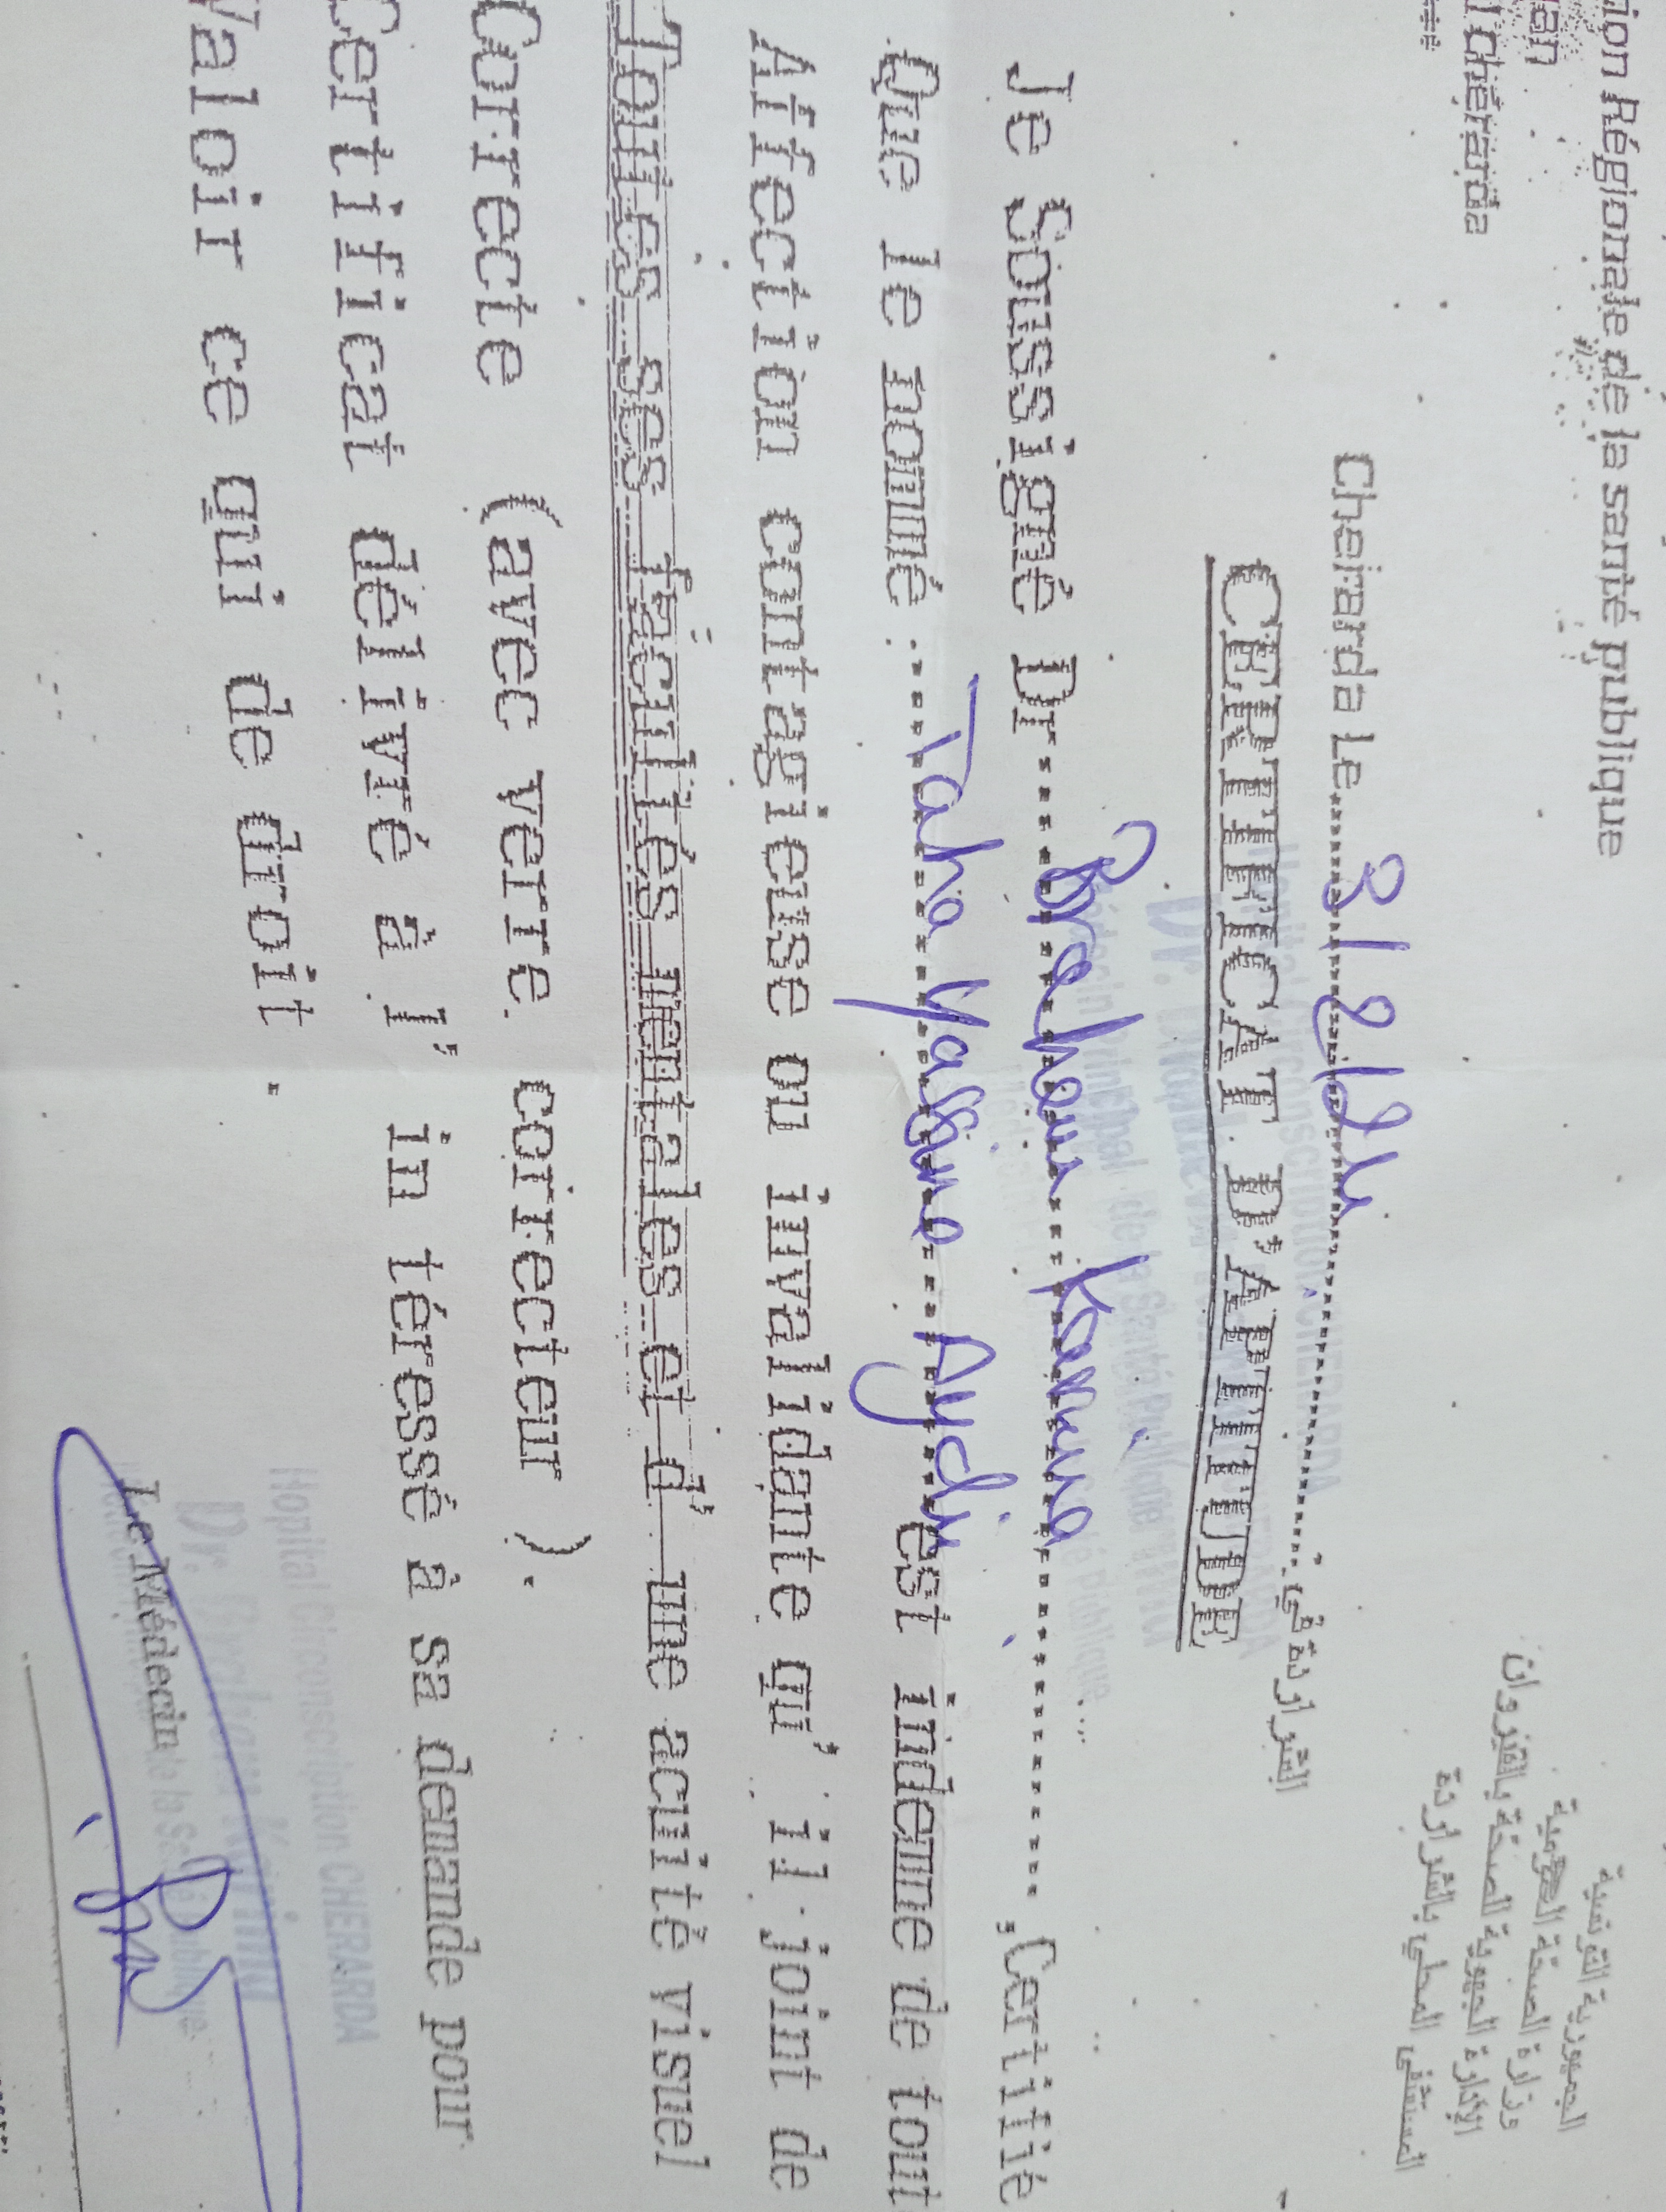 ion Régionale de la santé publique
an
Cherarda
الجمهورية التونسية
وزارة الصحة العمومية
الإدارة الجهوية للصحة بالقيروان
المستشفى المحلي بالشراردة
Cheirarda Le 3/8/24 الشراردة في
CERTIFICAT D'APTITUDE
Je Soussigné Dr Brahem Karima ,Certifié
Que le nommé : Taha Yassine Aydi est indemne de tout
Affection contagieuse ou invalidante qu' il joint de
Toutes ses facultés mentales et d' une acuité visuel
Correcte (avec verre correcteur ).
Certificat délivré à l' in téressé à sa demande pour
Valoir ce qui de droit .
Le Médecin
Hopital Circonscription CHERARDA
Dr.